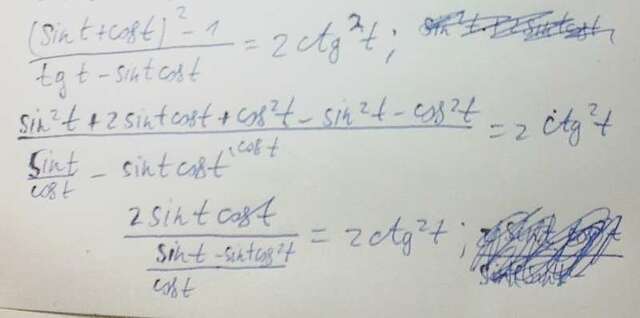 (sint+cost)²-1 / tgt-sintcost = 2ctg²t;
sin²t+2sintcost+cos²t-sin²t-cos²t / sint/cost - sintcost·cost = 2ctg²t
2sintcost / (sint-sintcos²t / cost) = 2ctg²t;